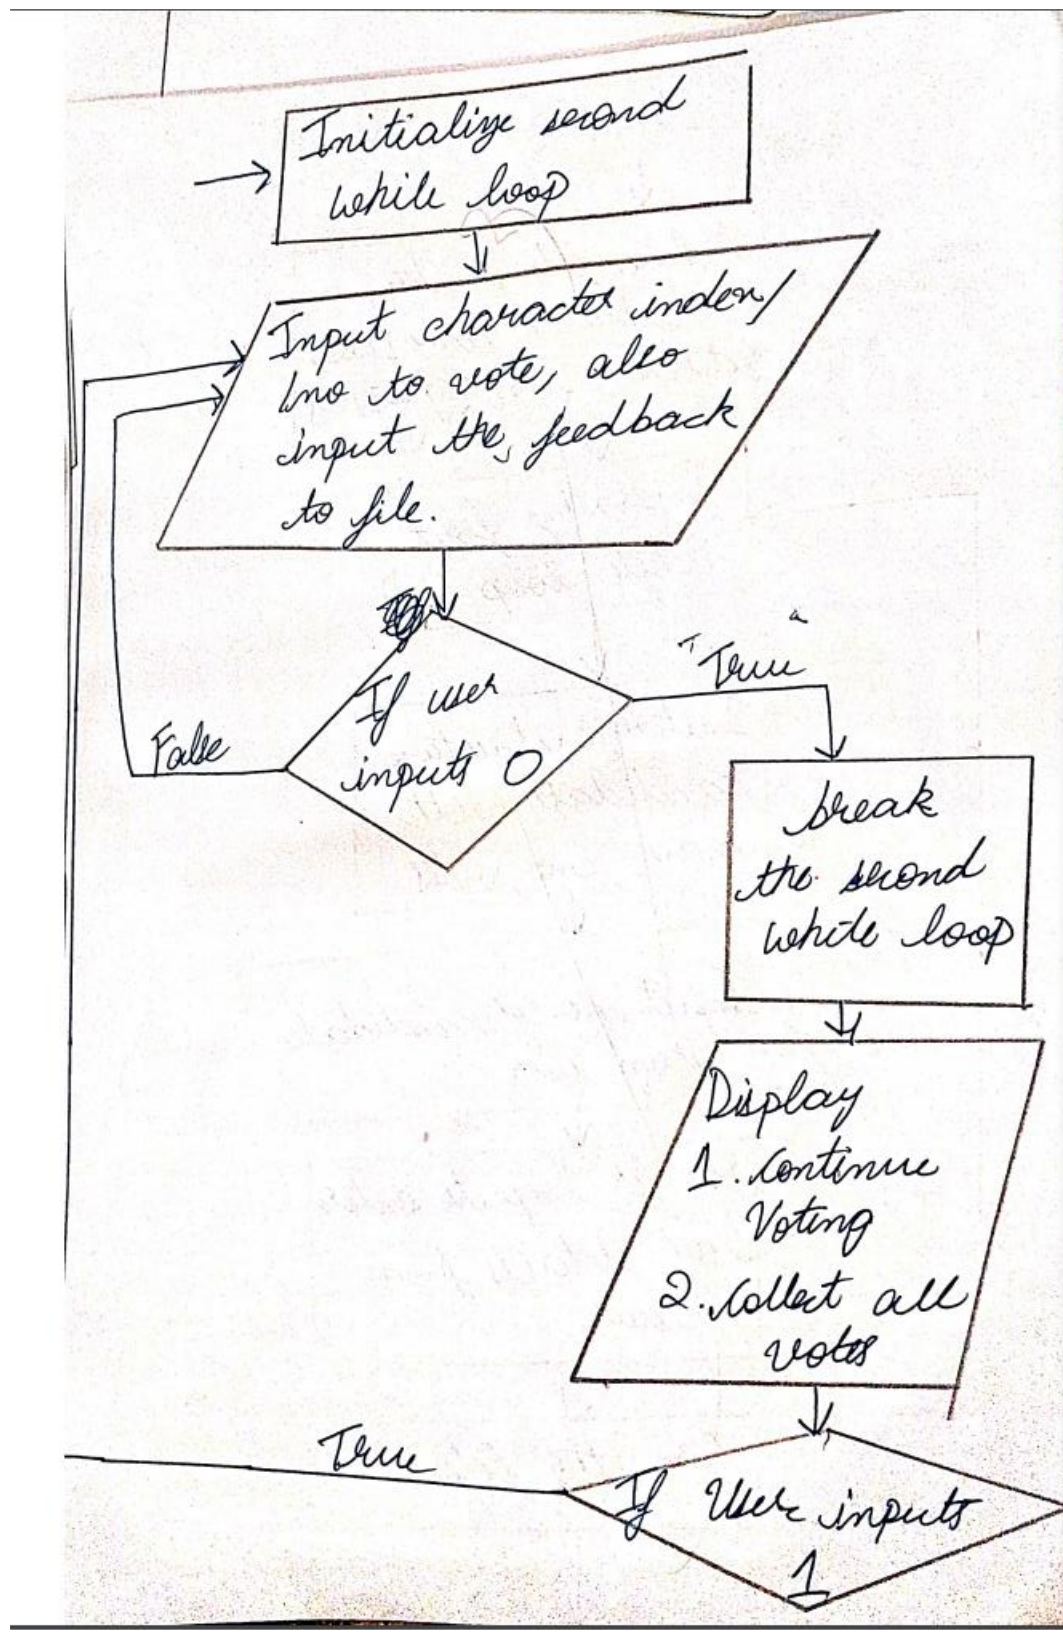 Initialize second
while loop
Input character index/
/no to vote, also
input the feedback
to file.
If user
inputs 0
"True"
False
break
the second
while loop
Display
1. Continue
Voting
2. Collect all
votes
True
If User inputs
1